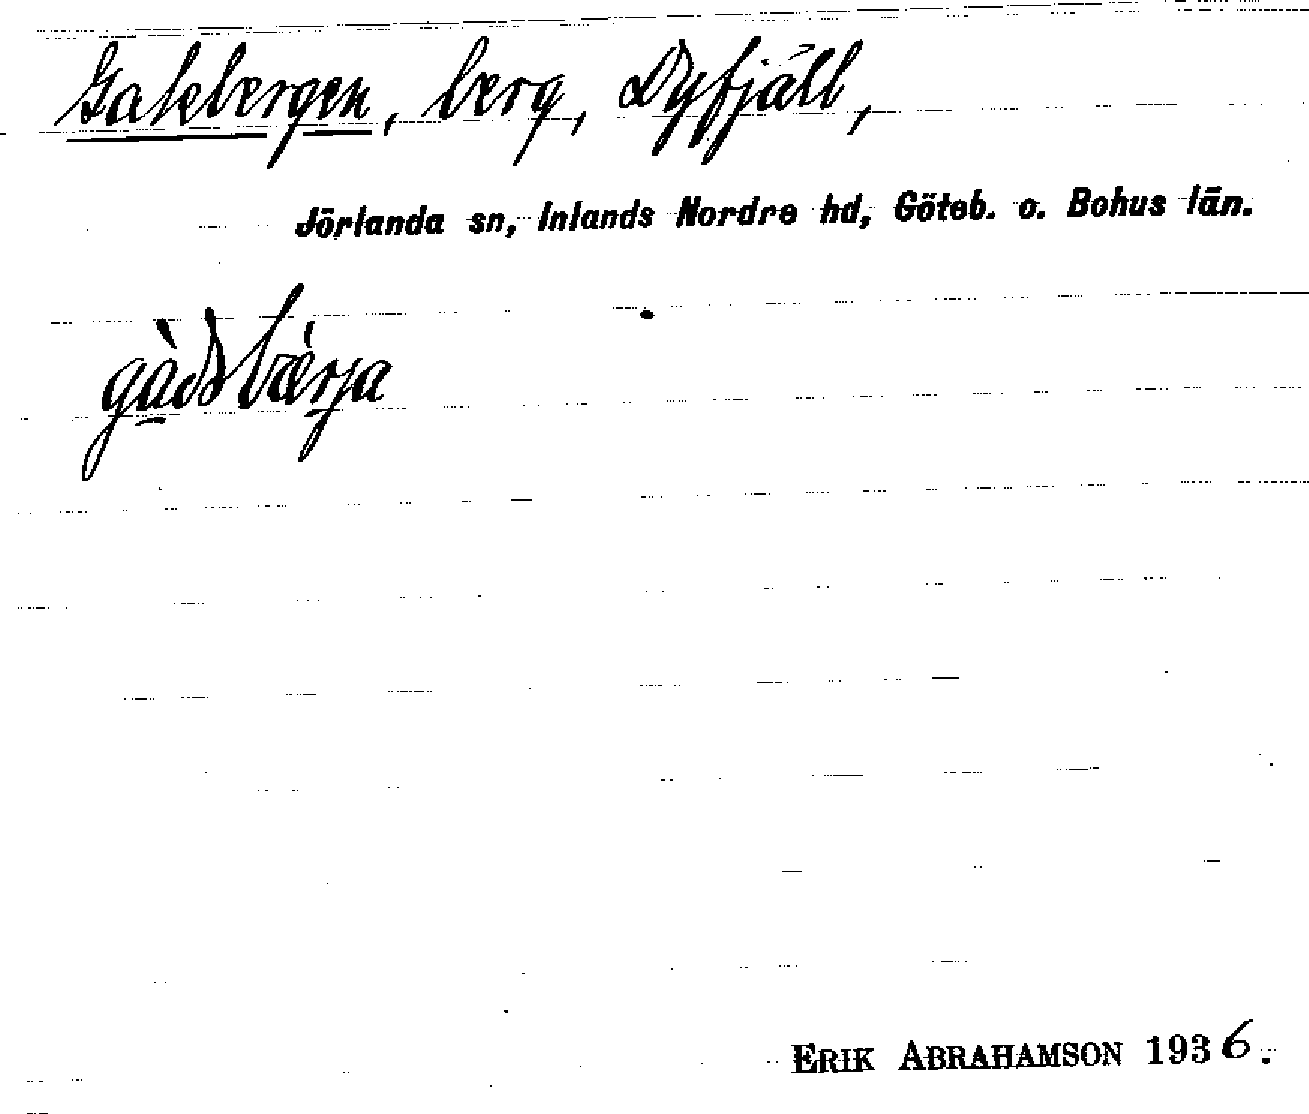 Gatebergen, berg, Dyfjäll,
Jörlanda sn, Inlands Nordre hd, Göteb. o. Bohus län.
ERIK ABRAHAMSON 1936.